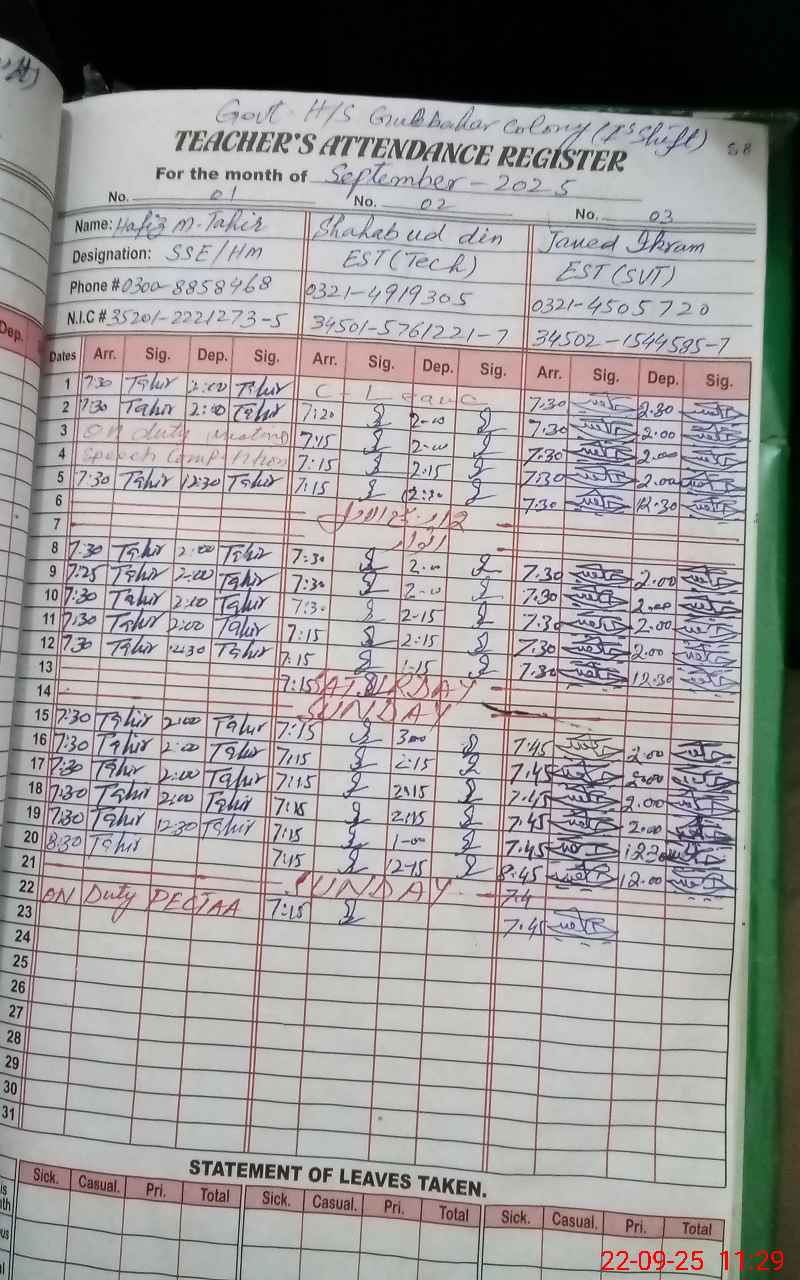 Govt. H/S Gulbahar Colony (Ist Shift)
58
TEACHER'S ATTENDANCE REGISTER
For the month of September - 2025
No. 01 No. 02 No. 03
Name: Hafiz M. Tahir Shahab ud din Javed Ikram
Designation: SSE/HM EST (Tech) EST (SVT)
Phone # 0300-8858468 0321-4919305 0321-4505720
N.I.C # 35201-2221273-5 34501-5761221-7 34502-1544585-7
Dates Arr. Sig. Dep. Sig. Arr. Sig. Dep. Sig. Arr. Sig. Dep. Sig.
1 7:30 Tahir 2:00 Tahir C-Leave 7.30 2.30
2 7:30 Tahir 2:00 Tahir 7:20 2-00 7.30 2.00
3 On duty 7:15 2-00 7.30 2.00
4 Speech Competition 7:15 2:15 7.30 2.00
5 7:30 Tahir 12:30 Tahir 7:15 12:30 7.30 12.30
6
7 اتوار
8 7:30 Tahir 2:00 Tahir 7:30 2-00 7.30 2.00
9 7:25 Tahir 2:00 Tahir 7:30 2-00 7.30 2.00
10 7:30 Tahir 2:00 Tahir 7:30 2-15 7.30 2.00
11 7:30 Tahir 2:00 Tahir 7:15 2:15 7.30 2.00
12 7:30 Tahir 12:30 Tahir 7:15 1-15 7.30 12.30
13 7:15 SATURDAY
14 SUNDAY
15 7:30 Tahir 2:00 Tahir 7:15 3-00 7.45 2.00
16 7:30 Tahir 2:00 Tahir 7:15 2:15 7.45 2.00
17 7:30 Tahir 2:00 Tahir 7:15 2:15 7.45 2.00
18 7:30 Tahir 2:00 Tahir 7:15 2:15 7.45 2.00
19 7:30 Tahir 12:30 Tahir 7:15 1-00 7.45 12.30
20 8:30 Tahir 7:15 12-15 8.45 12.00
21 SUNDAY 7.4
22 ON Duty PECTAA 7:15 7.45
23
24
25
26
27
28
29
30
31
STATEMENT OF LEAVES TAKEN.
Sick. Casual. Pri. Total Sick. Casual. Pri. Total Sick. Casual. Pri. Total
Dep.
22-09-25 11:29